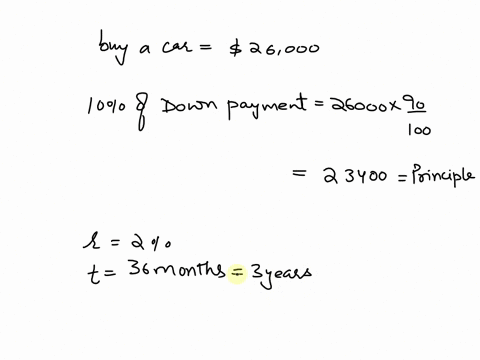 buy a car = $ 26,000
10% of Down payment = 26000 × 90/100
= 23400 = Principle
r = 2%
t = 36 months = 3 years